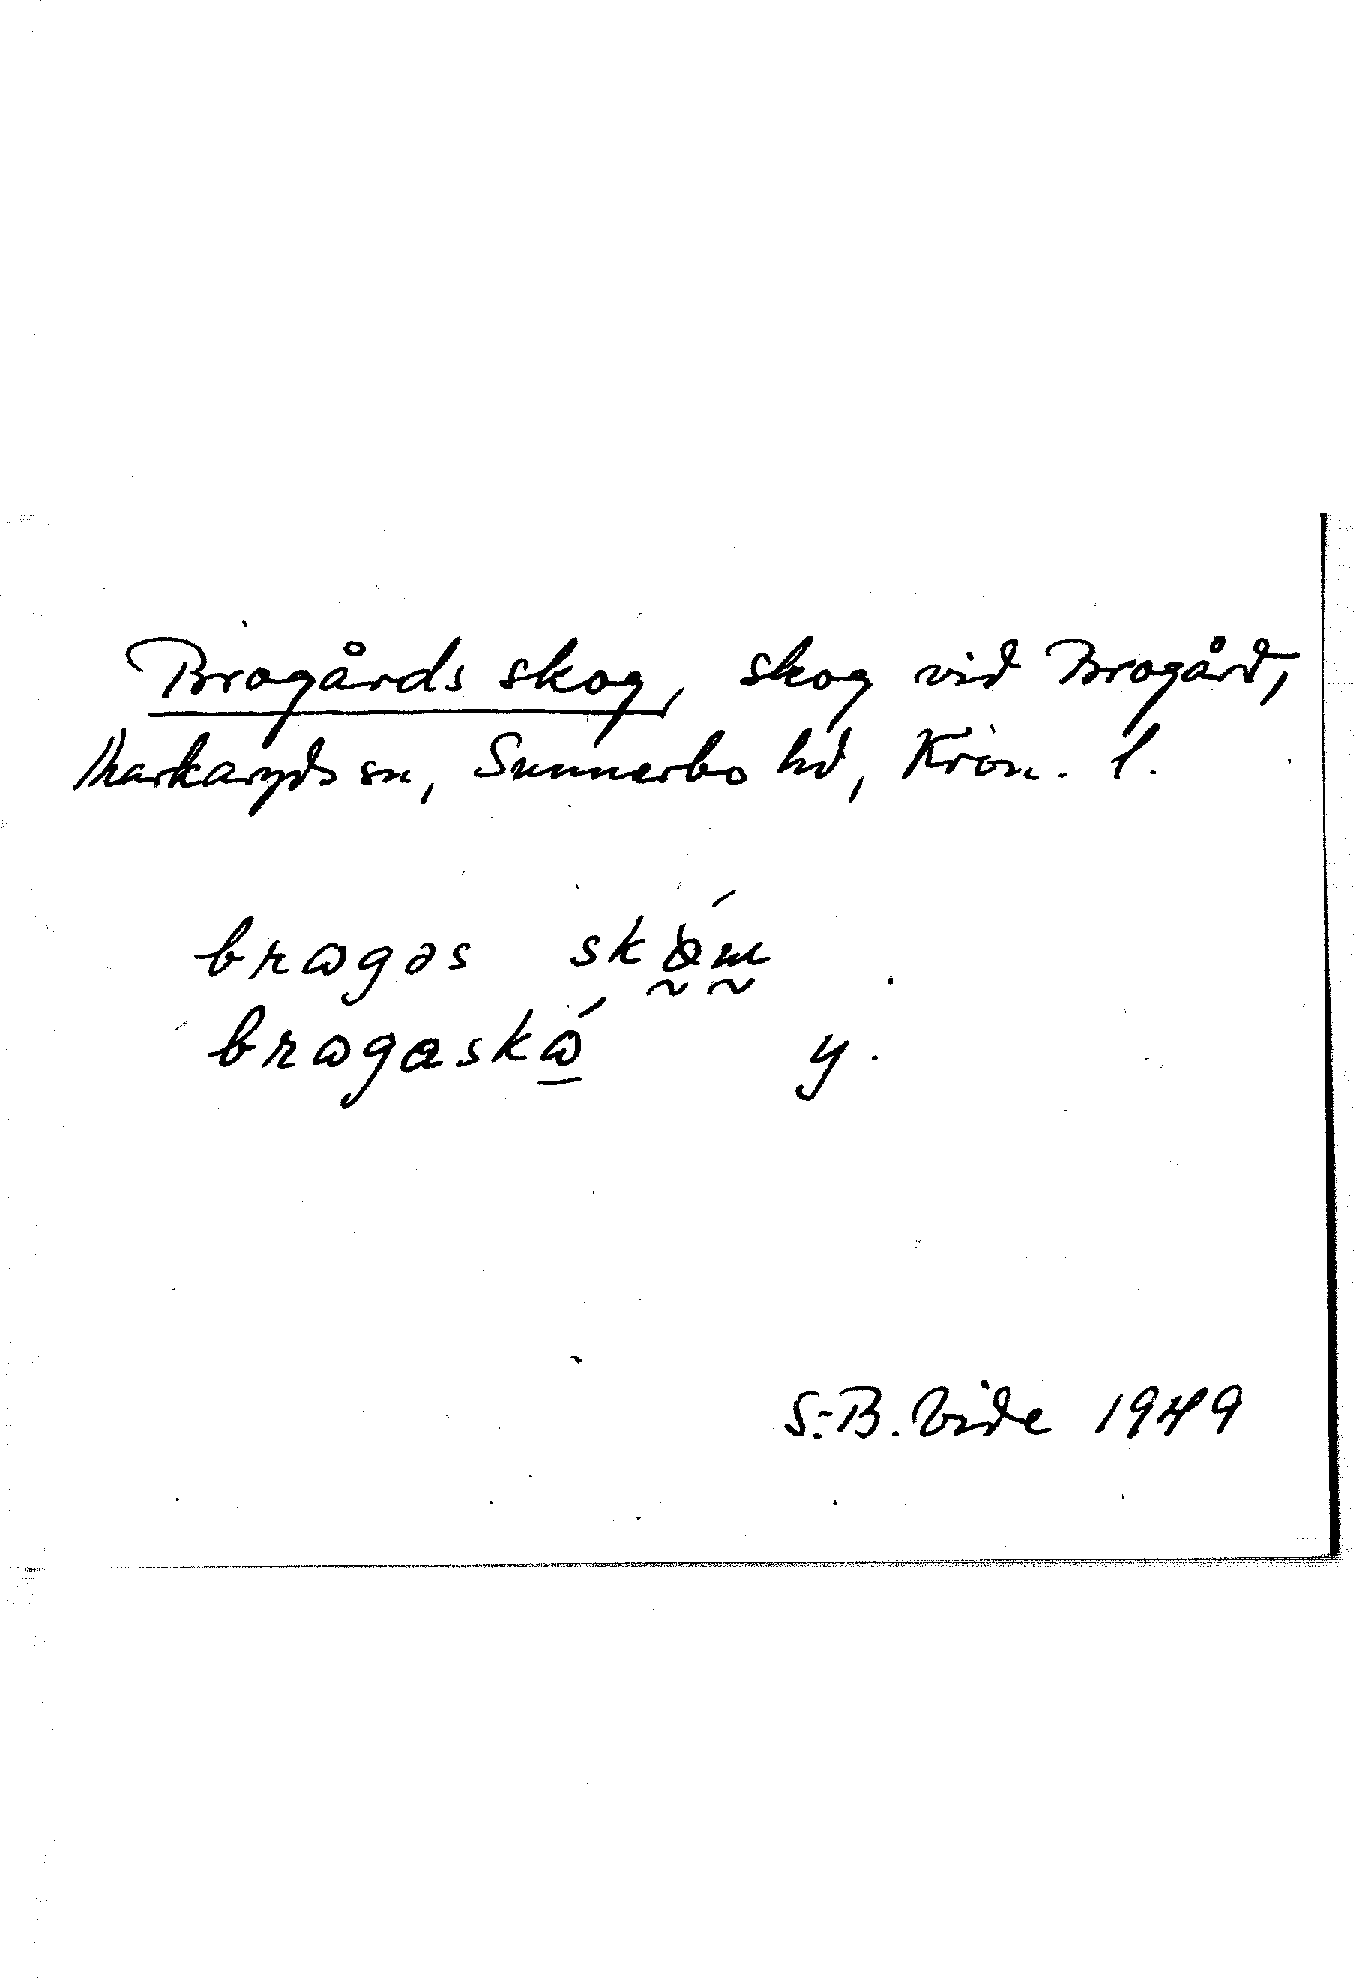 Brogårds skog, skog vid Brogård,
Markaryds sn, Sunnerbo hd, Kron. l.
brɷgəs
brɷgaskɷ́ y.
S.-B. Vide 1949